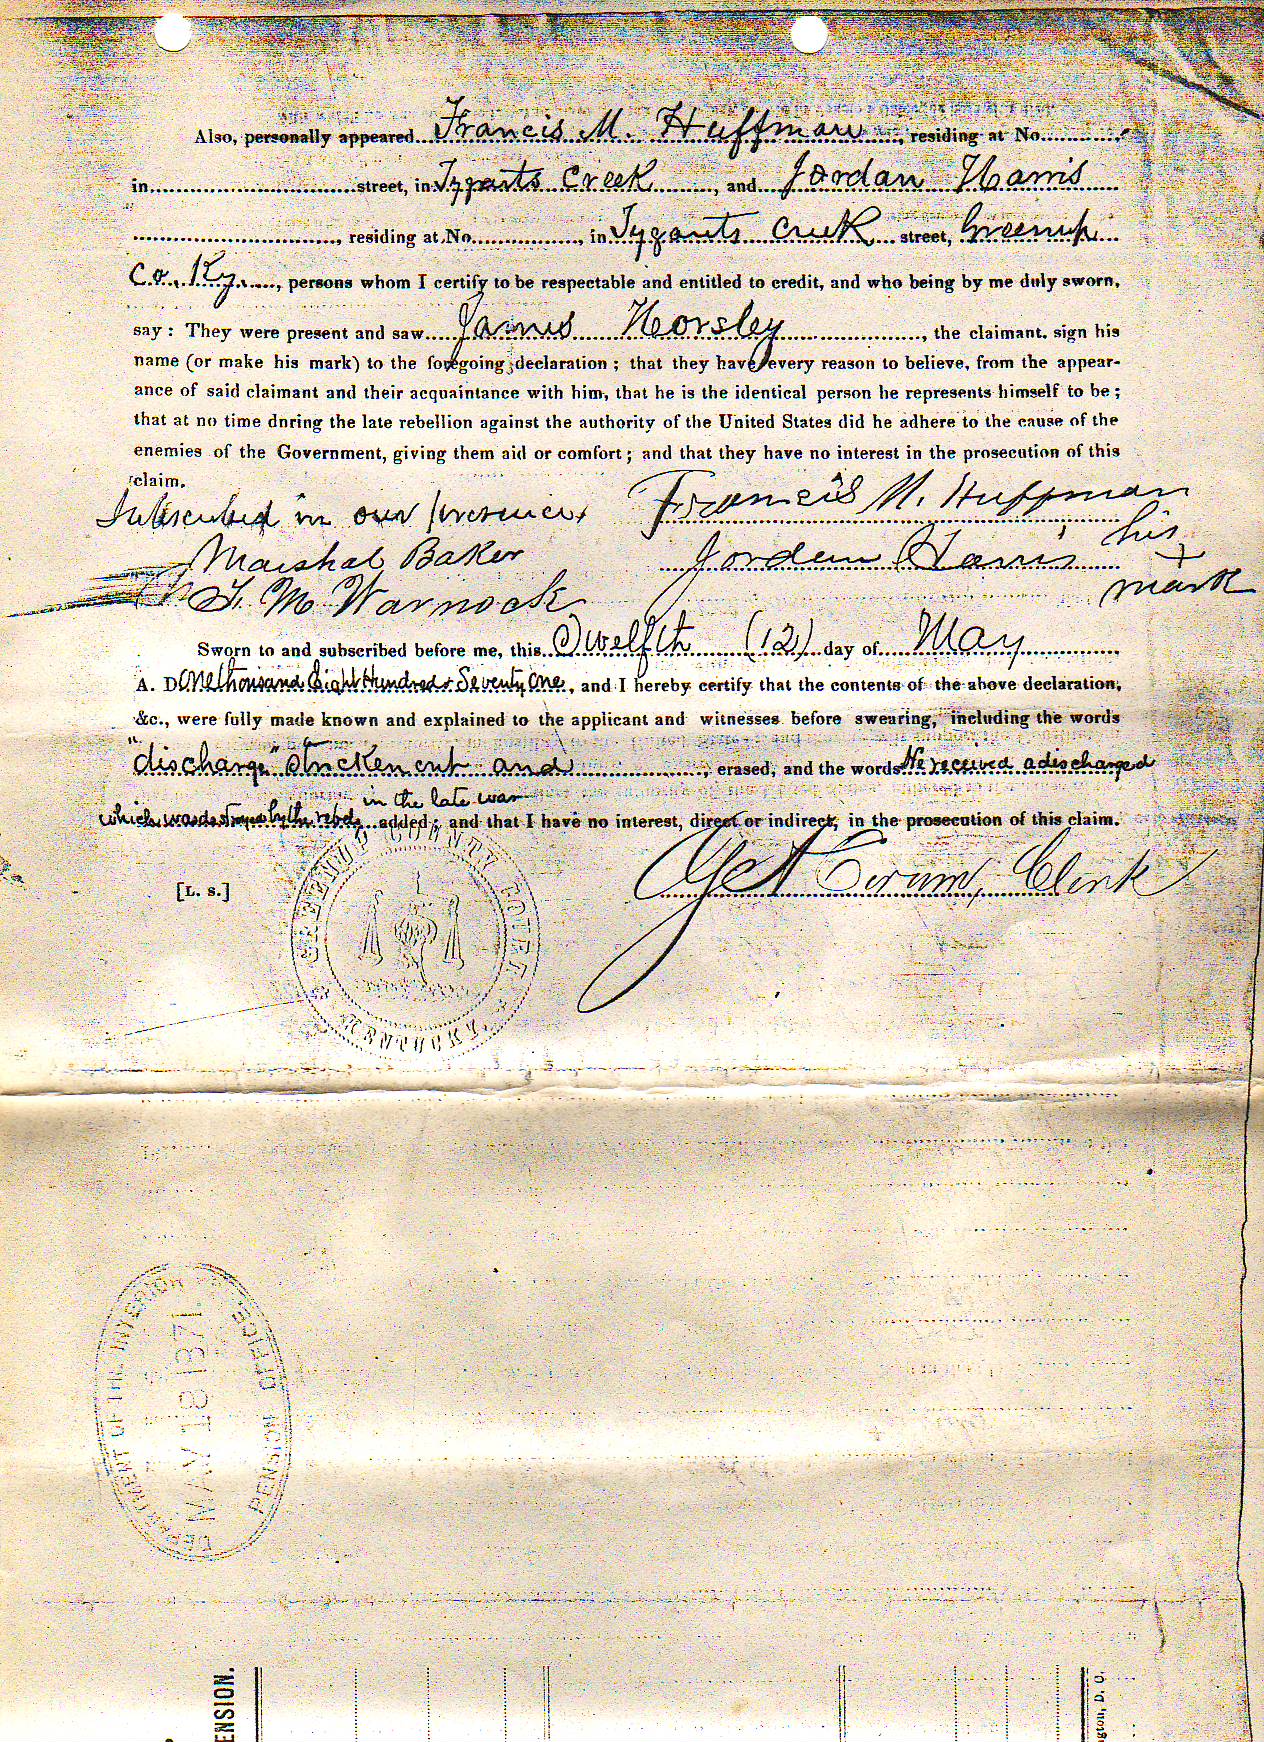 Also, personally appeared Francis M. Huffman, residing at No.
in street, in Tygarts Creek, and Jordan Harris
, residing at No. , in Tygarts Creek street, Greenup
Co. Ky. , persons whom I certify to be respectable and entitled to credit, and who being by me duly sworn,
say : They were present and saw James Horsley , the claimant. sign his
name (or make his mark) to the foregoing declaration ; that they have every reason to believe, from the appear-
ance of said claimant and their acquaintance with him, that he is the identical person he represents himself to be ;
that at no time dnring the late rebellion against the authority of the United States did he adhere to the cause of the
enemies of the Government, giving them aid or comfort ; and that they have no interest in the prosecution of this
claim.
Subscribed in our presence
Francis M. Huffman
Marshal Baker
Jordan Harris his
+
mark
F. M. Warnock
Sworn to and subscribed before me, this Twelfth (12) day of May
A. D One thousand Eight Hundred & Seventy One, and I hereby certify that the contents of the above declaration,
&c., were fully made known and explained to the applicant and witnesses before swearing, including the words
"discharge" stricken out and , erased, and the words He received a discharged
in the late war
which was destroyed by the rebels added ; and that I have no interest, direct or indirect, in the prosecution of this claim.
Clerk
[L. S.]
GREENUP COUNTY COURT
KENTUCKY.
DEPARTMENT OF THE INTERIOR
MAY 18 1871.
PENSION OFFICE
ENSION.
gton, D. C.